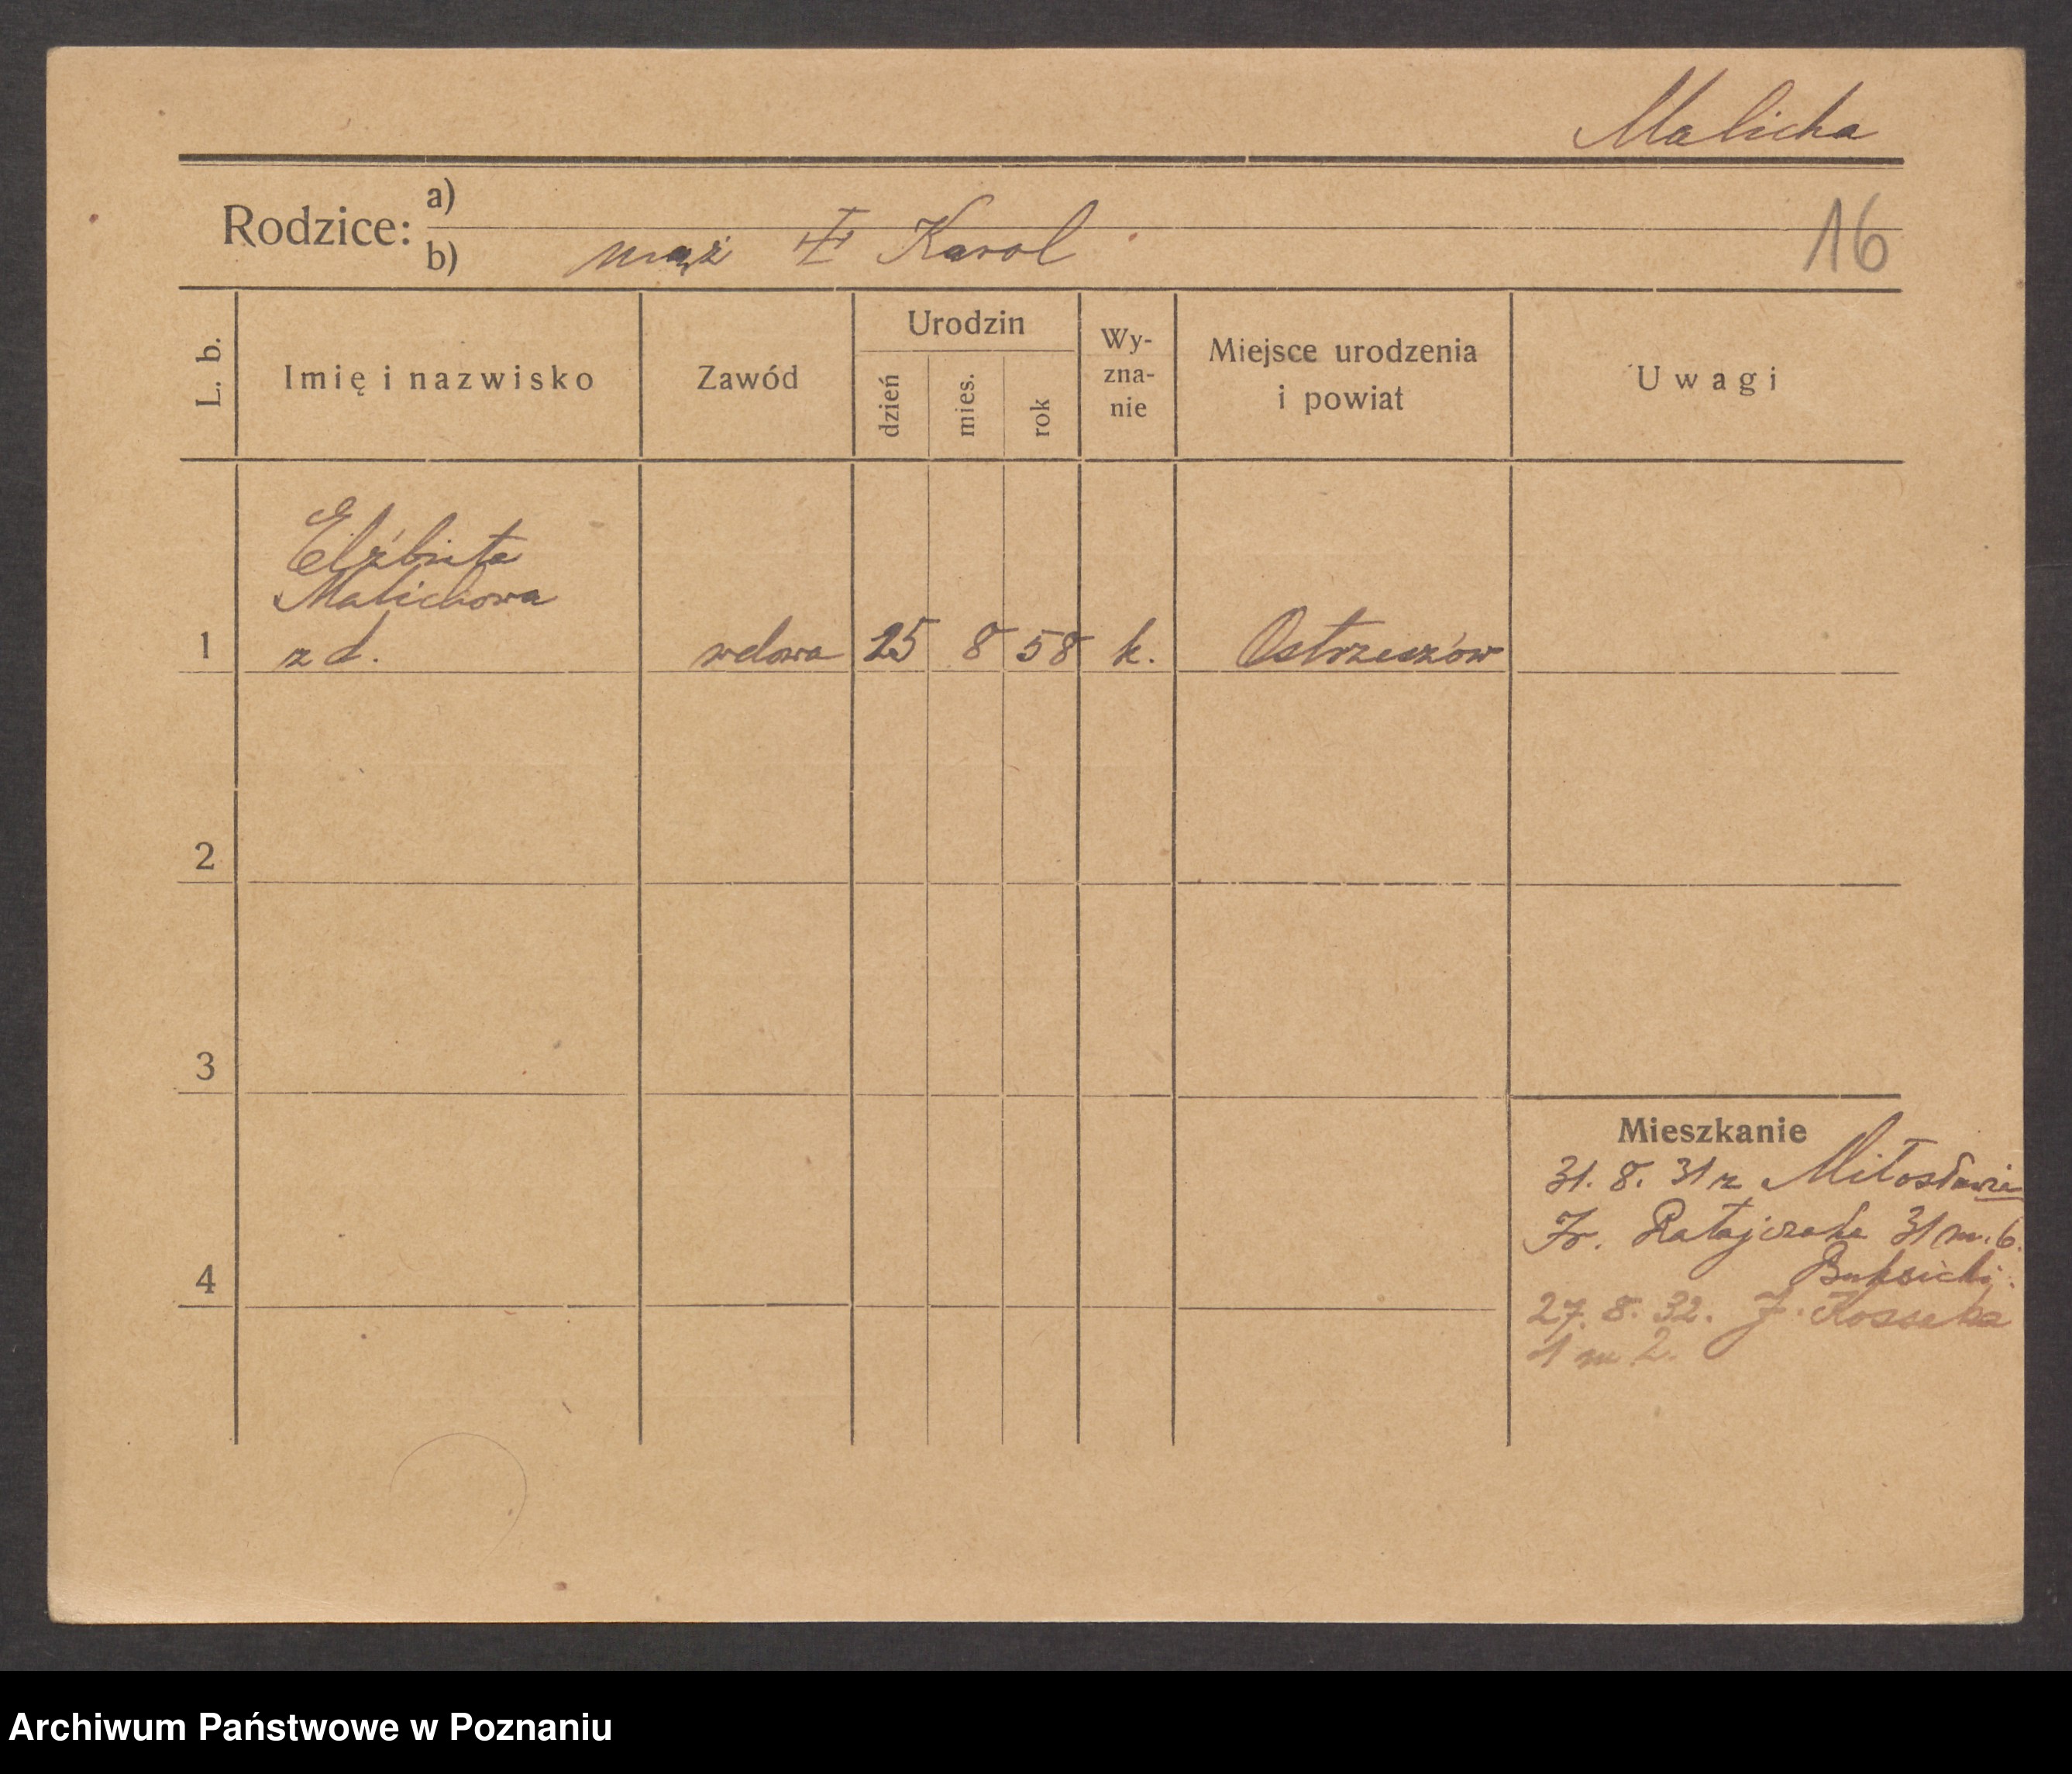 Malicha
Rodzice: a)
b) mąż ‡ Karol
16
L. b. Imię i nazwisko Zawód Urodzin dzień mies. rok Wy-zna-nie Miejsce urodzenia i powiat Uwagi
Elżbieta
Malichowa
1 z d. wdowa 25 8 58 k. Ostrzeszów
2
3
Mieszkanie
31. 8. 31 z Miłosławia
Fr. Ratajczaka 31 m. 6.
4
27. 8. 32. J. Kossaka
1 m 2.
Archiwum Państwowe w Poznaniu